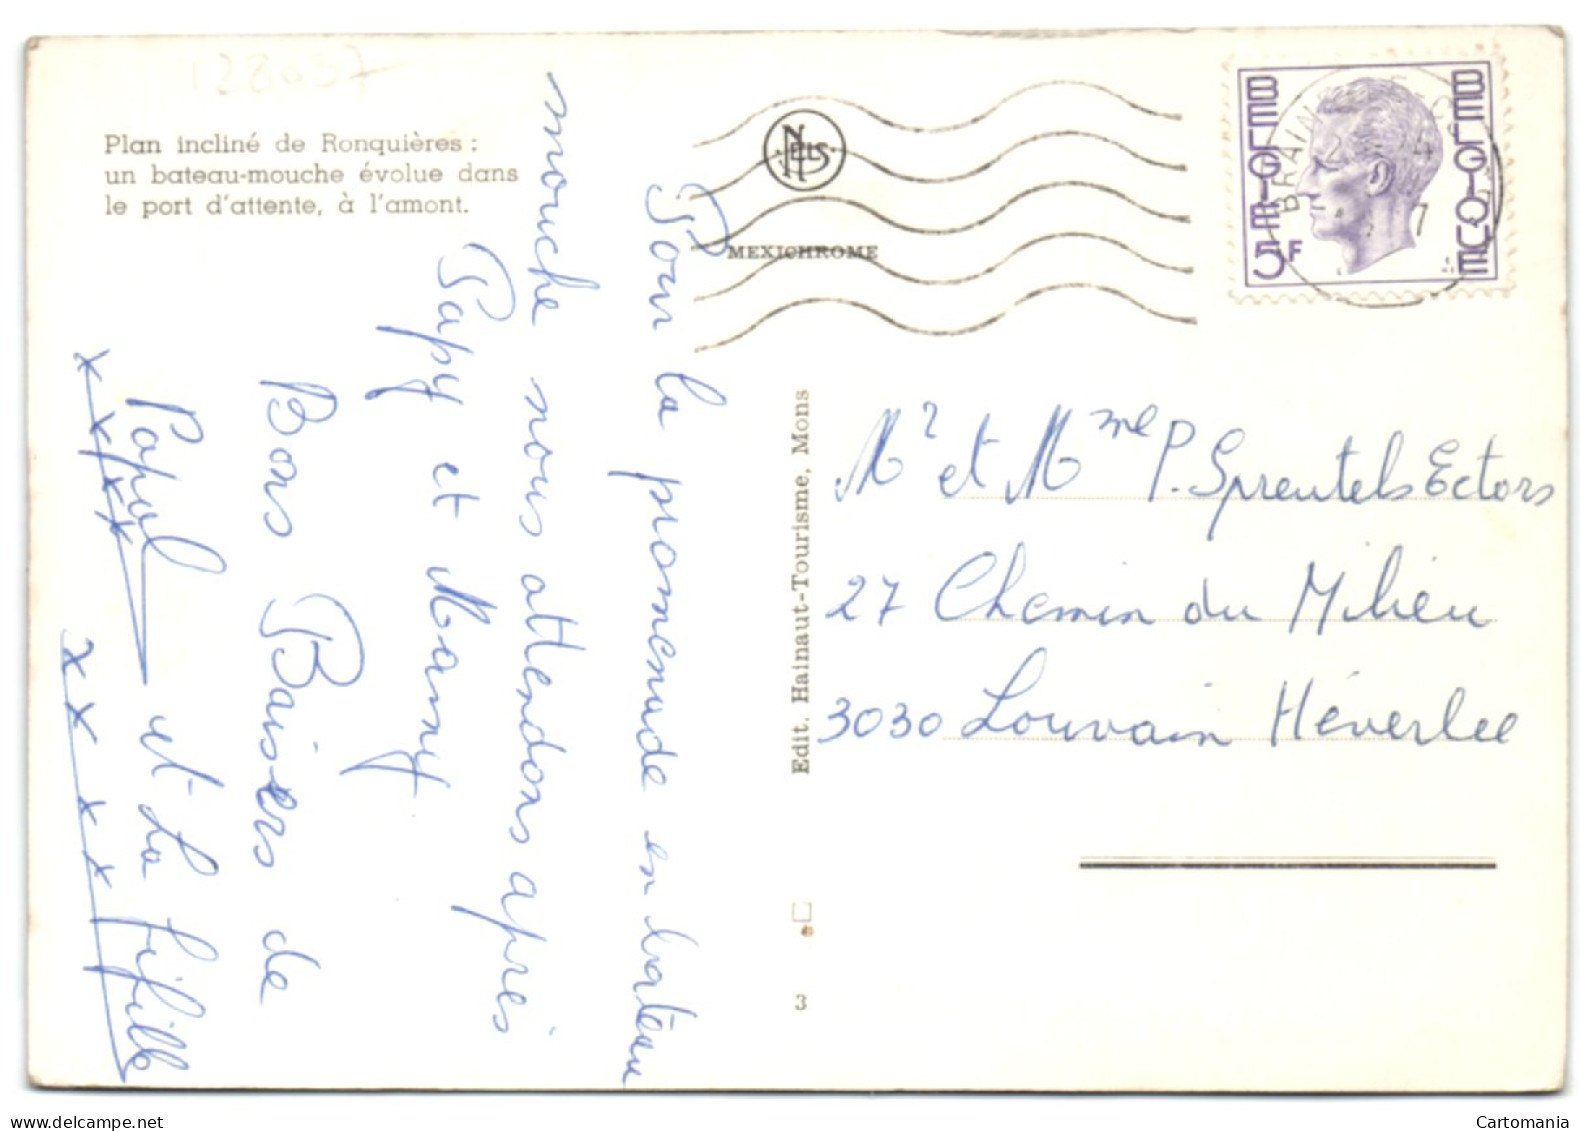 128037
Plan incliné de Ronquières :
un bateau-mouche évolue dans
le port d'attente, à l'amont.
Pour la promenade en bateau
mouche nous attendons après
Papy et Mamy
Bons Baisers de
Papul et La fifille
x x x x x
x x x x x
NELS
MEXICHROME
BELGIE 5F
BELGIQUE
BRAIN
Edit. Hainaut-Tourisme, Mons
3
Mr et Mme P. Spreutels Ectors
27 Chemin du Milieu
3030 Louvain Héverlee
www.delcampe.net
Cartomania